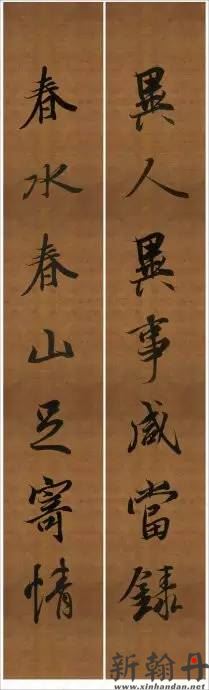 異人異事咸當錄
春水春山足寄情
新翰丹
www.xinhandan.net